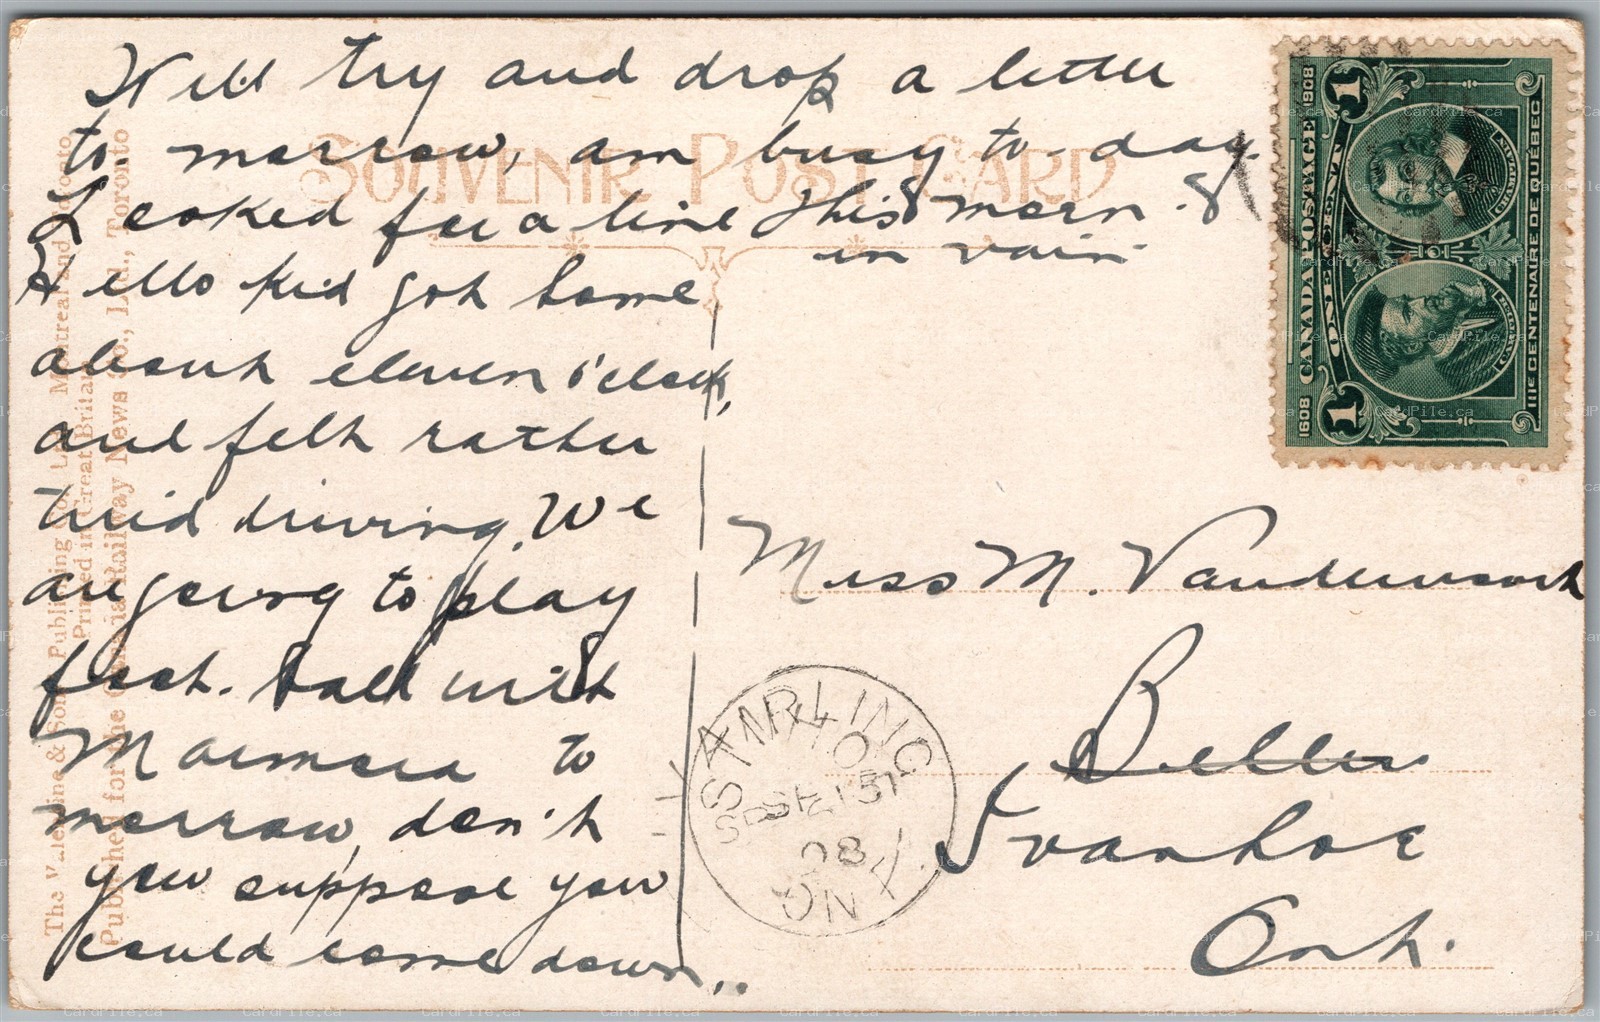 Will try and drop a letter
to-morrow, am busy to-day.
Looked for a line this morn.
in vain
Hello kid got home
about eleven o'clock,
and felt rather
tired driving. We
are going to play
foot. ball with
Marmora to
morrow, don't
you suppose you
could come down..
SOUVENIR POST CARD
The Valentine & Sons Publishing Co., Ltd., Montreal and Toronto
Printed in Great Britain
Published for the Canada Railway News Co., Ltd., Toronto
1608 CANADA POSTAGE 1908
ONE CENT
1 1
CHAMPLAIN
CARTIER
IIIE CENTENAIRE DE QUÉBEC
Miss M. Vandervoort
Bellev
Ivanhoe
Ont.
STIRLING
SP 15
08
ONT.
CardPile.ca